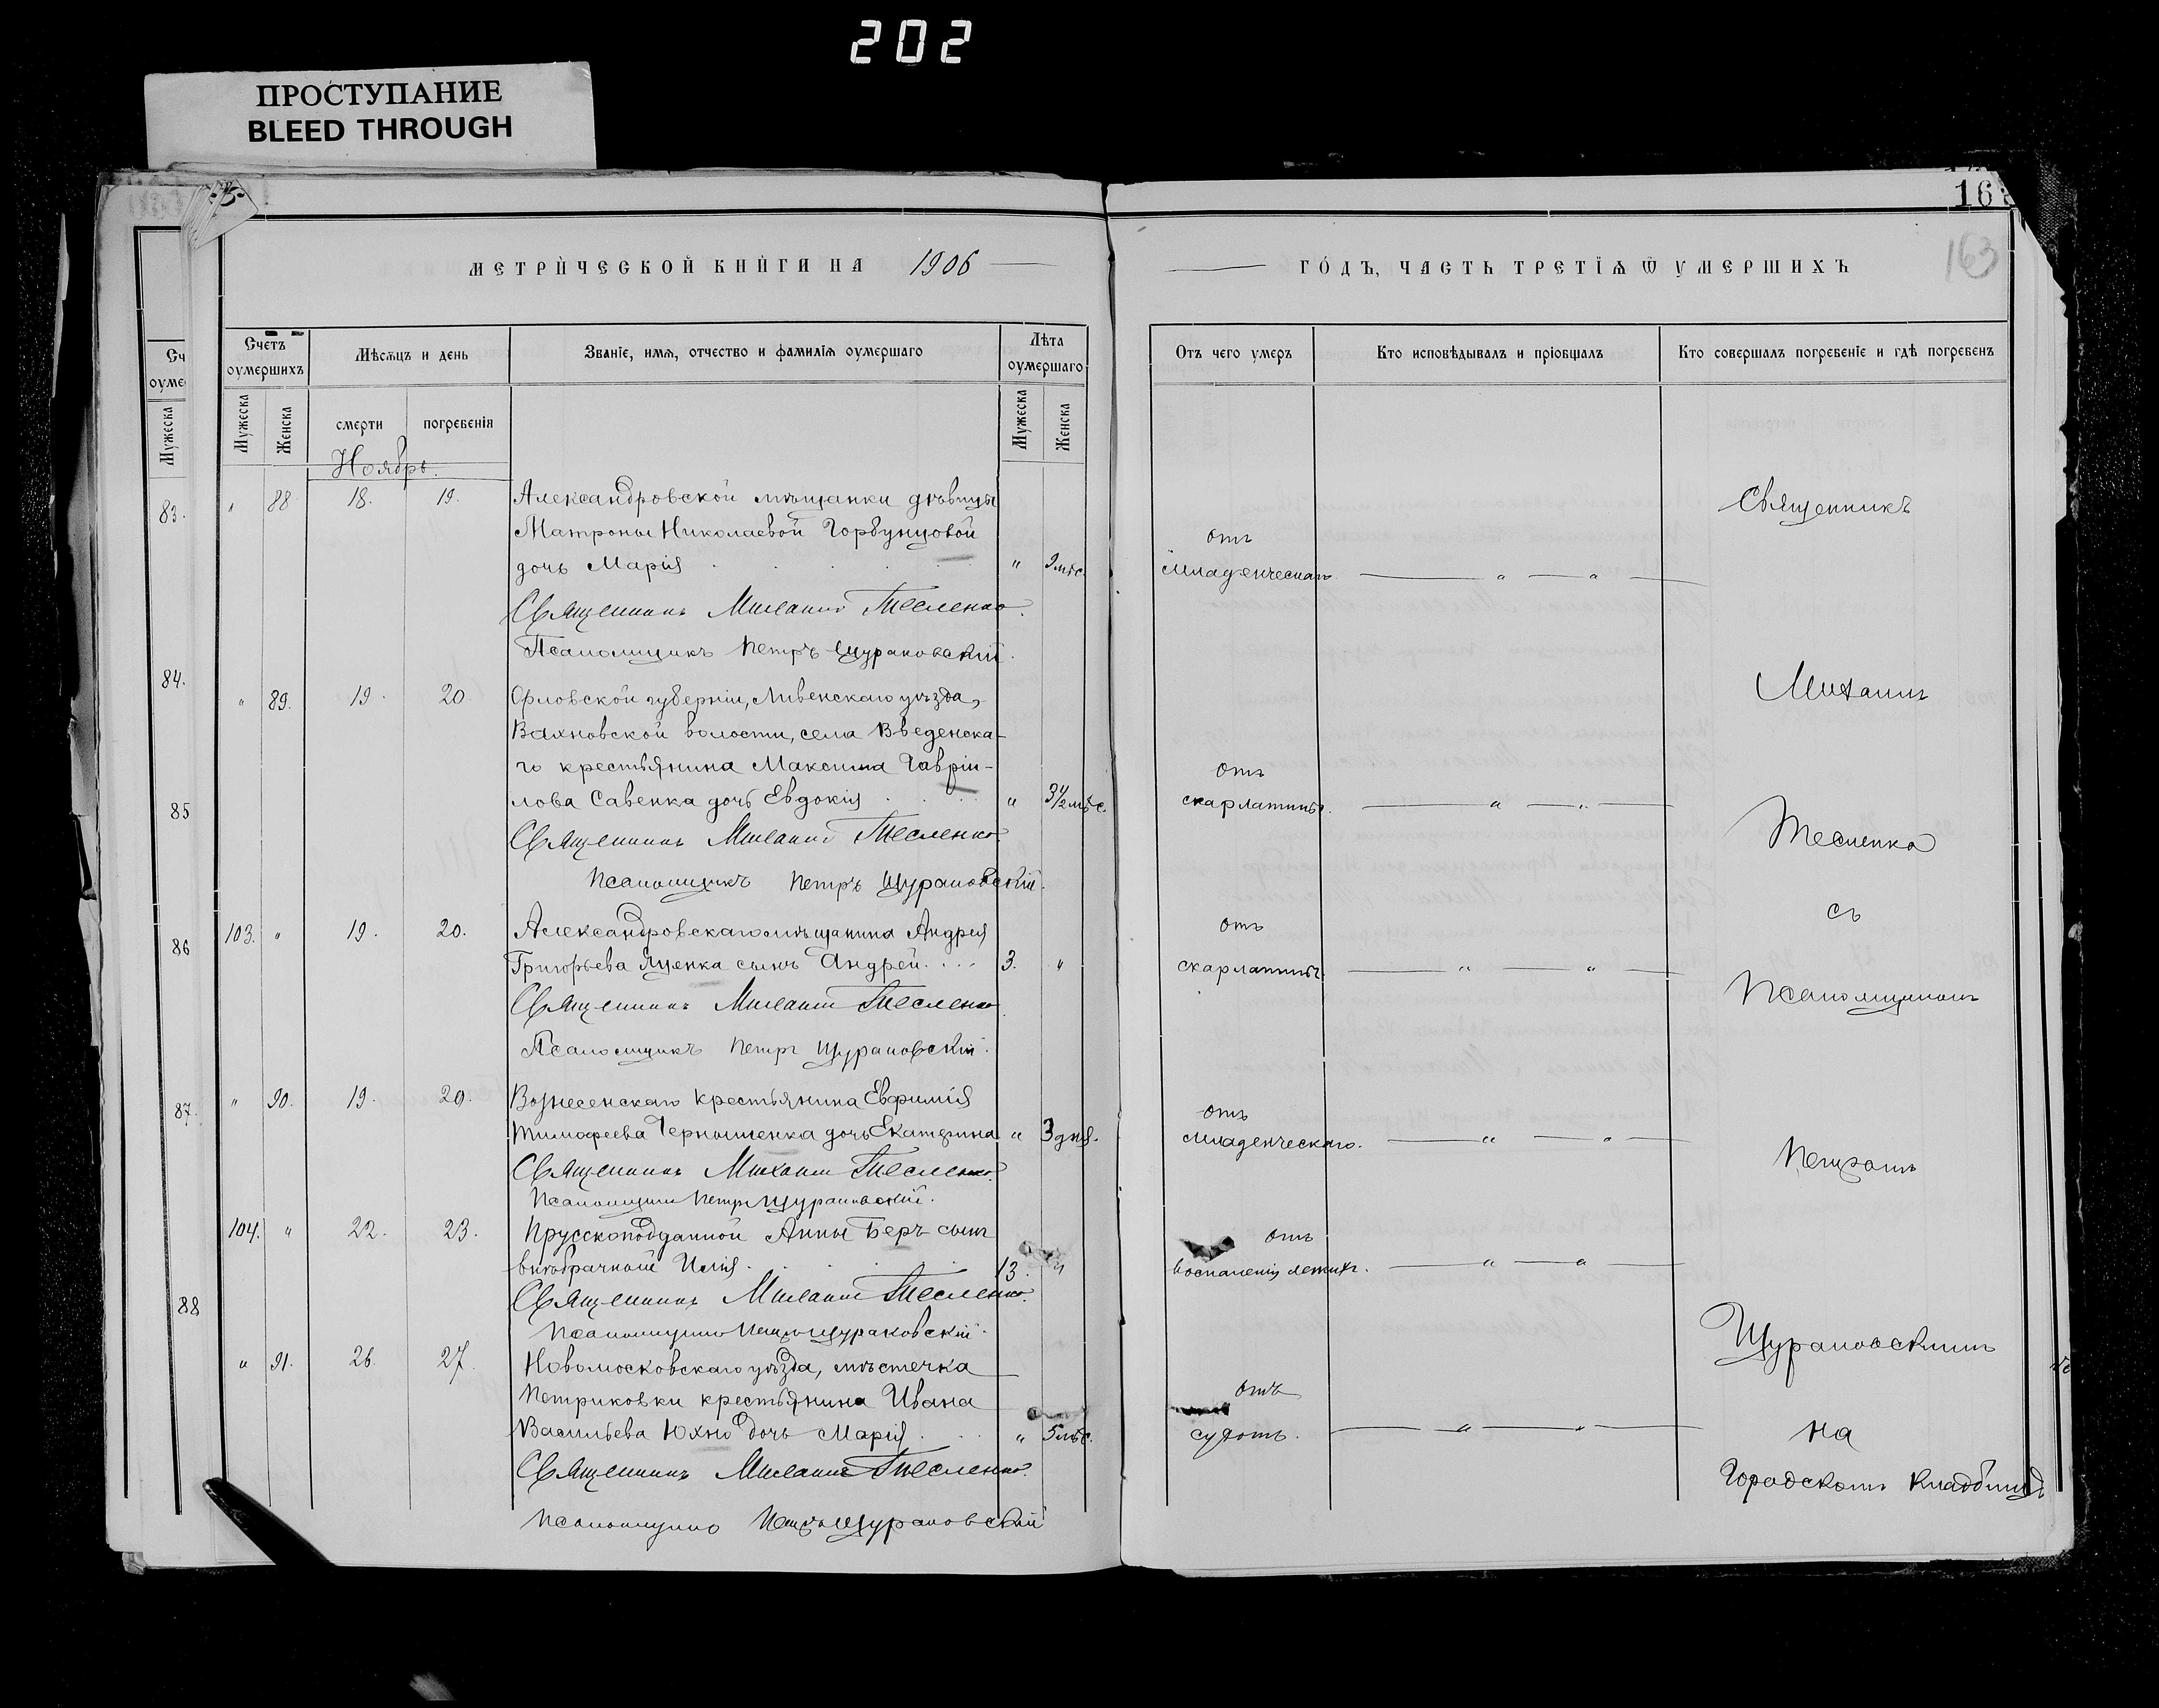 202
ПРОСТУПАНИЕ
BLEED THROUGH
16
163
МЕТРИЧЕСКОЙ КНИГИ НА 1906
ГОДЪ, ЧАСТЬ ТРЕТІѦ Ѿ УМЕРШИХЪ
Сч
оуме
Мужеска
83.
84.
85
86
87.
88
Счетъ оумершихъ
Мѣсѧцъ и день
Званіе, имѧ, отчество и фамиліѧ оумершаго
Лѣта оумершаго
Отъ чего умеръ
Кто исповѣдывалъ и пріобщалъ
Кто совершалъ погребеніе и гдѣ погребенъ
Мужеска
Женска
смерти
погребеніѧ
Мужеска
Женска
Ноябрь.
" 88 18. 19. Александровской мѣщанки дѣвицы
Матроны Николаевой Горбунцовой
дочь Марія " 9 мѣс. отъ младенческаго " "
Священникъ Михаилъ Тесленко.
Псаломщикъ Петръ Щураковскій.
" 89. 19. 20. Орловской губерніи, Ливенскаго уѣзда,
Вахновской волости, села Введенска-
го крестьянина Максима Гаврiи-
лова Савенка дочь Евдокія " 3½ мѣс. отъ скарлатины. " "
Священникъ Михаилъ Тесленко.
Псаломщикъ Петръ Щураковскій.
103. " 19. 20. Александровскаго мѣщанина Андрея
Григорьева Яценка сынъ Андрей 3. " отъ скарлатины. " "
Священникъ Михаилъ Тесленко.
Псаломщикъ Петръ Щураковскій.
" 90. 19. 20. Вознесенскаго крестьянина Евфимія
Тимофеева Чернышенка дочь Екатерина " 3 дня. отъ младенческаго. " "
Священникъ Михаилъ Тесленко.
Псаломщикъ Петръ Щураковскій.
104. " 22. 23. Прусскоподданной Анны Беръ сынъ
внѣбрачный Илія 13. " отъ воспаленія легкихъ. " "
Священникъ Михаилъ Тесленко.
Псаломщикъ Петръ Щураковскій.
" 91. 26. 27. Новомосковскаго уѣзда, мѣстечка
Петриковки крестьянина Ивана
Васильева Юхно дочь Марія " 5 мѣс. отъ " "
Священникъ Михаилъ Тесленко.
Псаломщикъ Петръ Щураковскій
Священникъ
Михаилъ
Тесленко
съ
Псаломщикомъ
Петромъ
Щураковскимъ
на
Городскомъ кладбищѣ